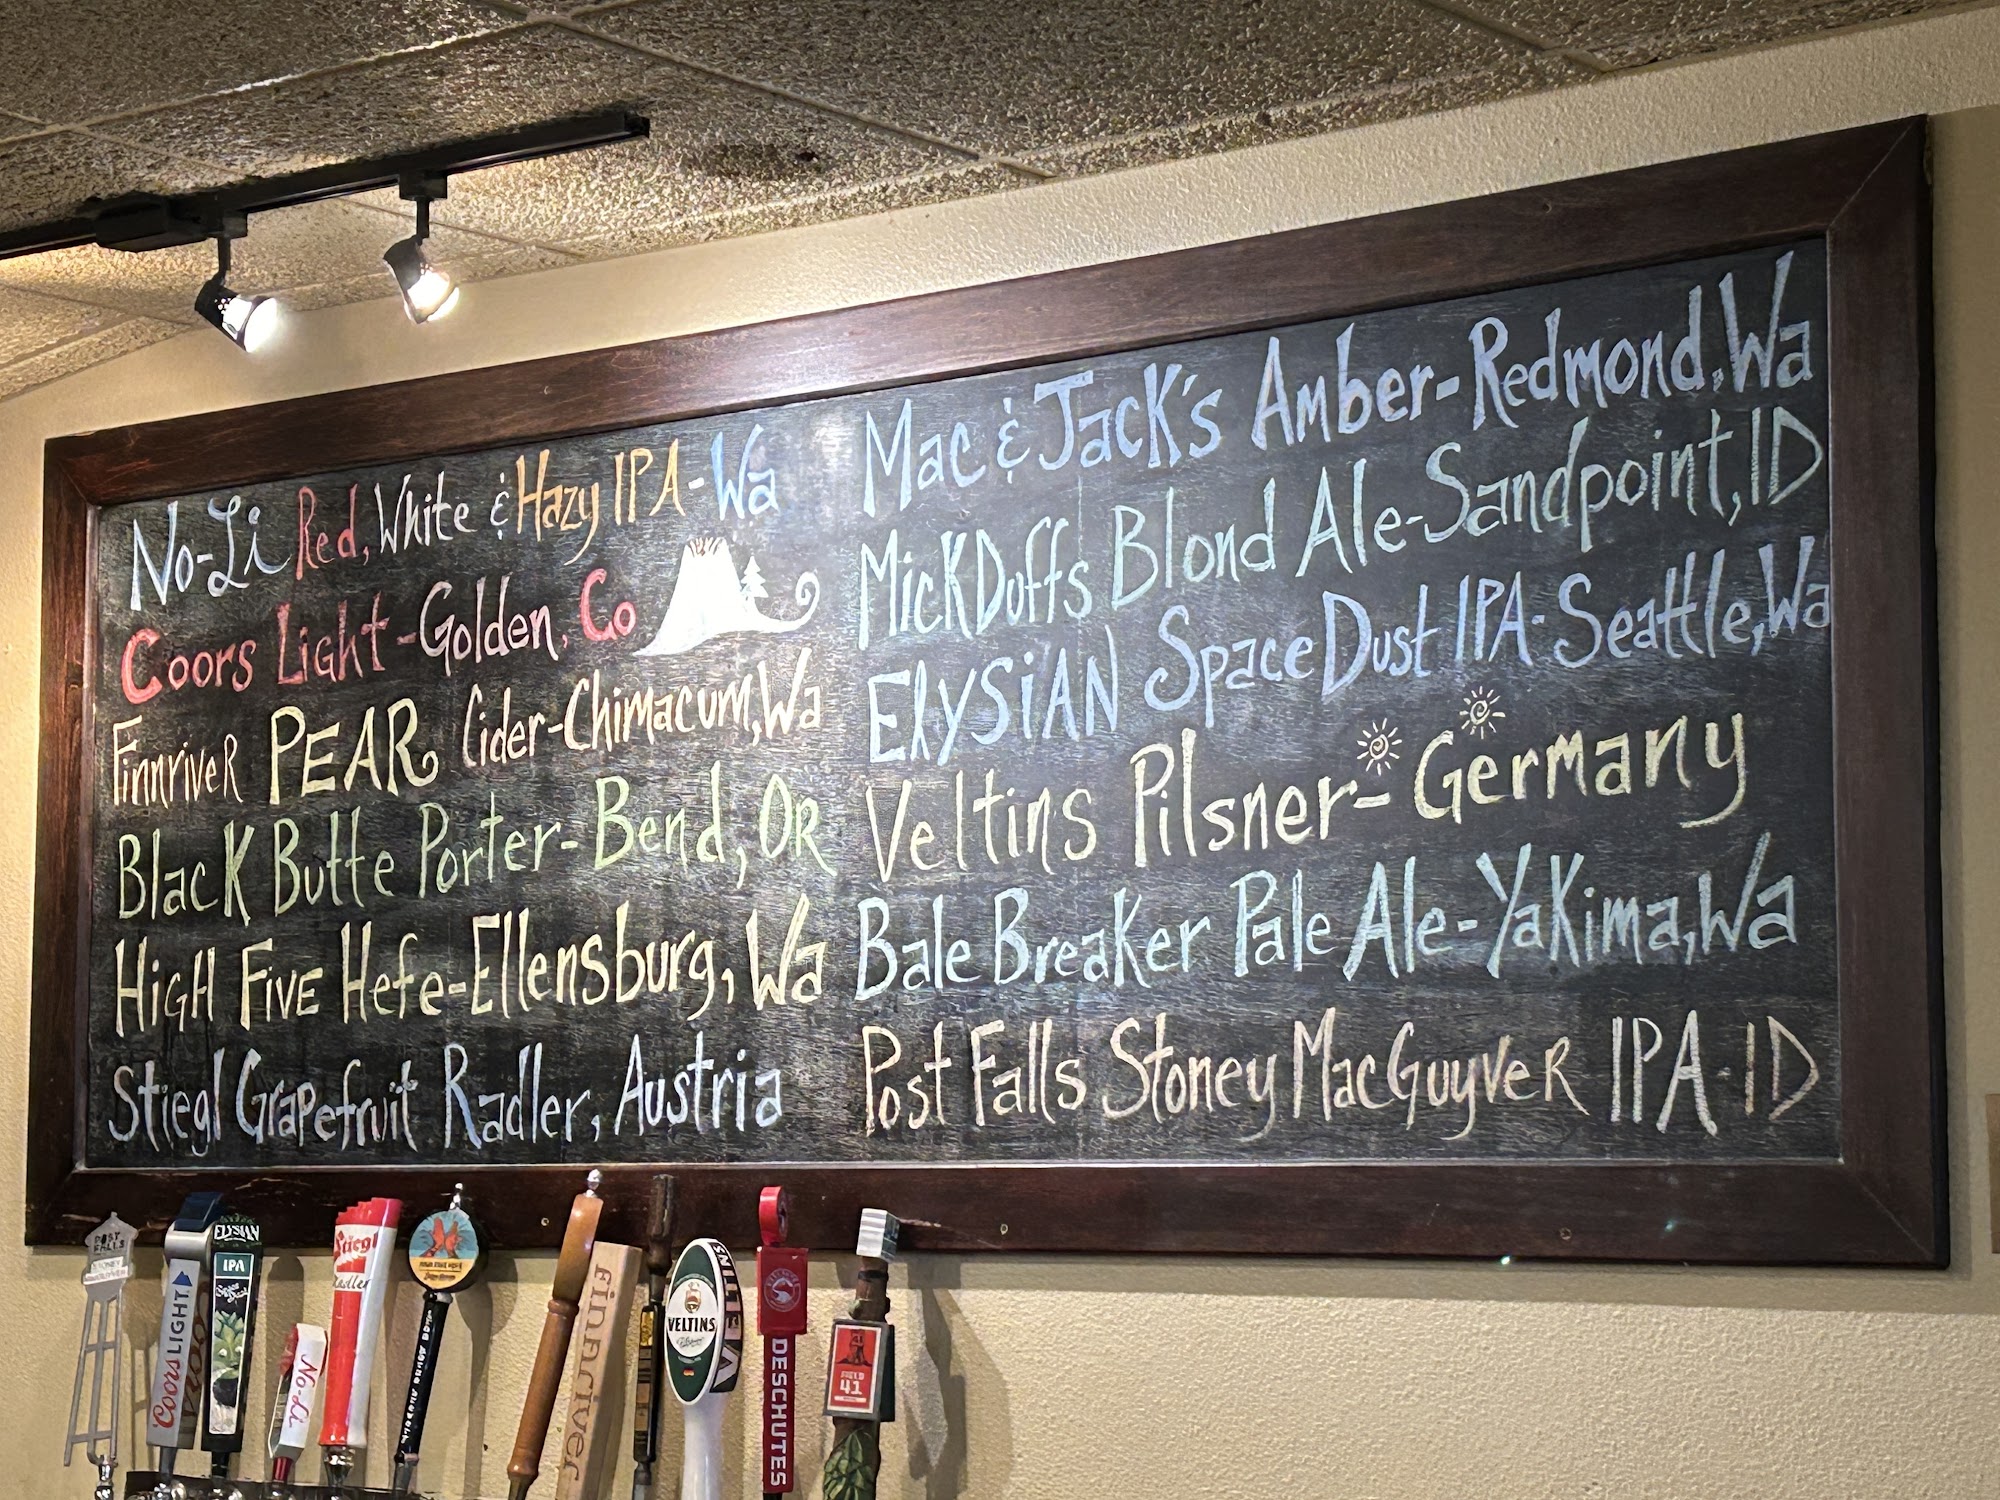 No-Li Red, White & Hazy IPA - Wa
Coors Light - Golden, Co
Finnriver PEAR Cider - Chimacum, Wa
Black Butte Porter - Bend, OR
High Five Hefe - Ellensburg, Wa
Stiegl Grapefruit Radler, Austria
Mac & Jack's Amber - Redmond, Wa
MickDuffs Blond Ale - Sandpoint, ID
Elysian Space Dust IPA - Seattle, Wa
Veltins Pilsner - Germany
Bale Breaker Pale Ale - Yakima, Wa
Post Falls Stoney MacGuyver IPA - ID
POST
FALLS
STONEY
Coors LIGHT
ELYSIAN
IPA
Space
Dust
No-Li
Stiegl
Radler
Finnriver
VELTINS
DESCHUTES
FIELD
41